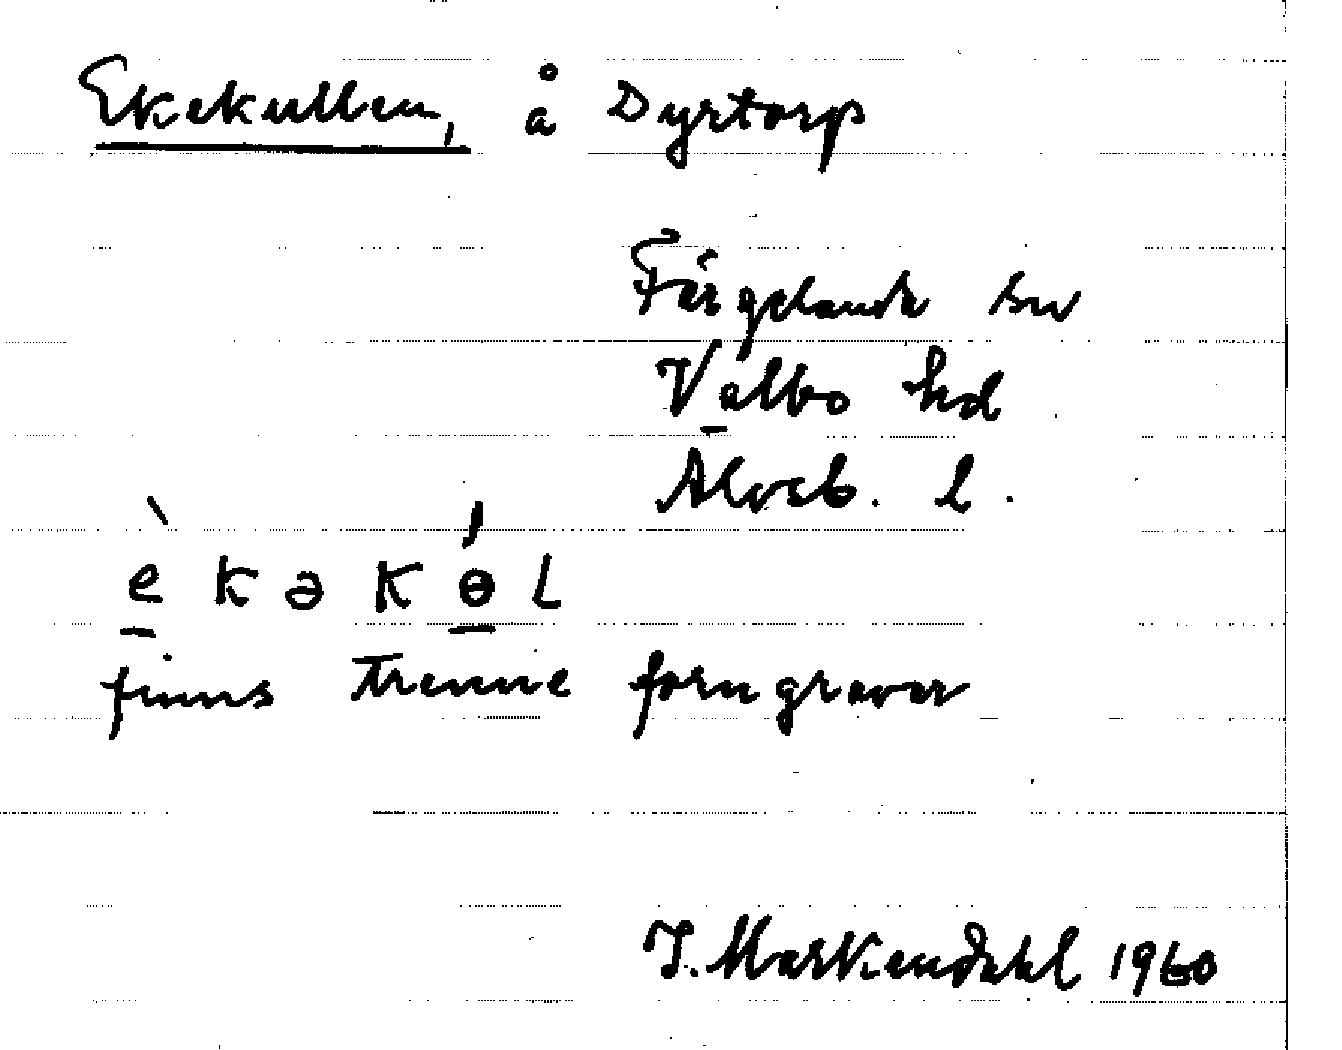 Ekekullen, å Dyrtorp
Färgelanda sn
Valbo hd
Älvsb. l.
è k ə k ɵ́ l
finns trenne forngravar
J. Markendahl 1960